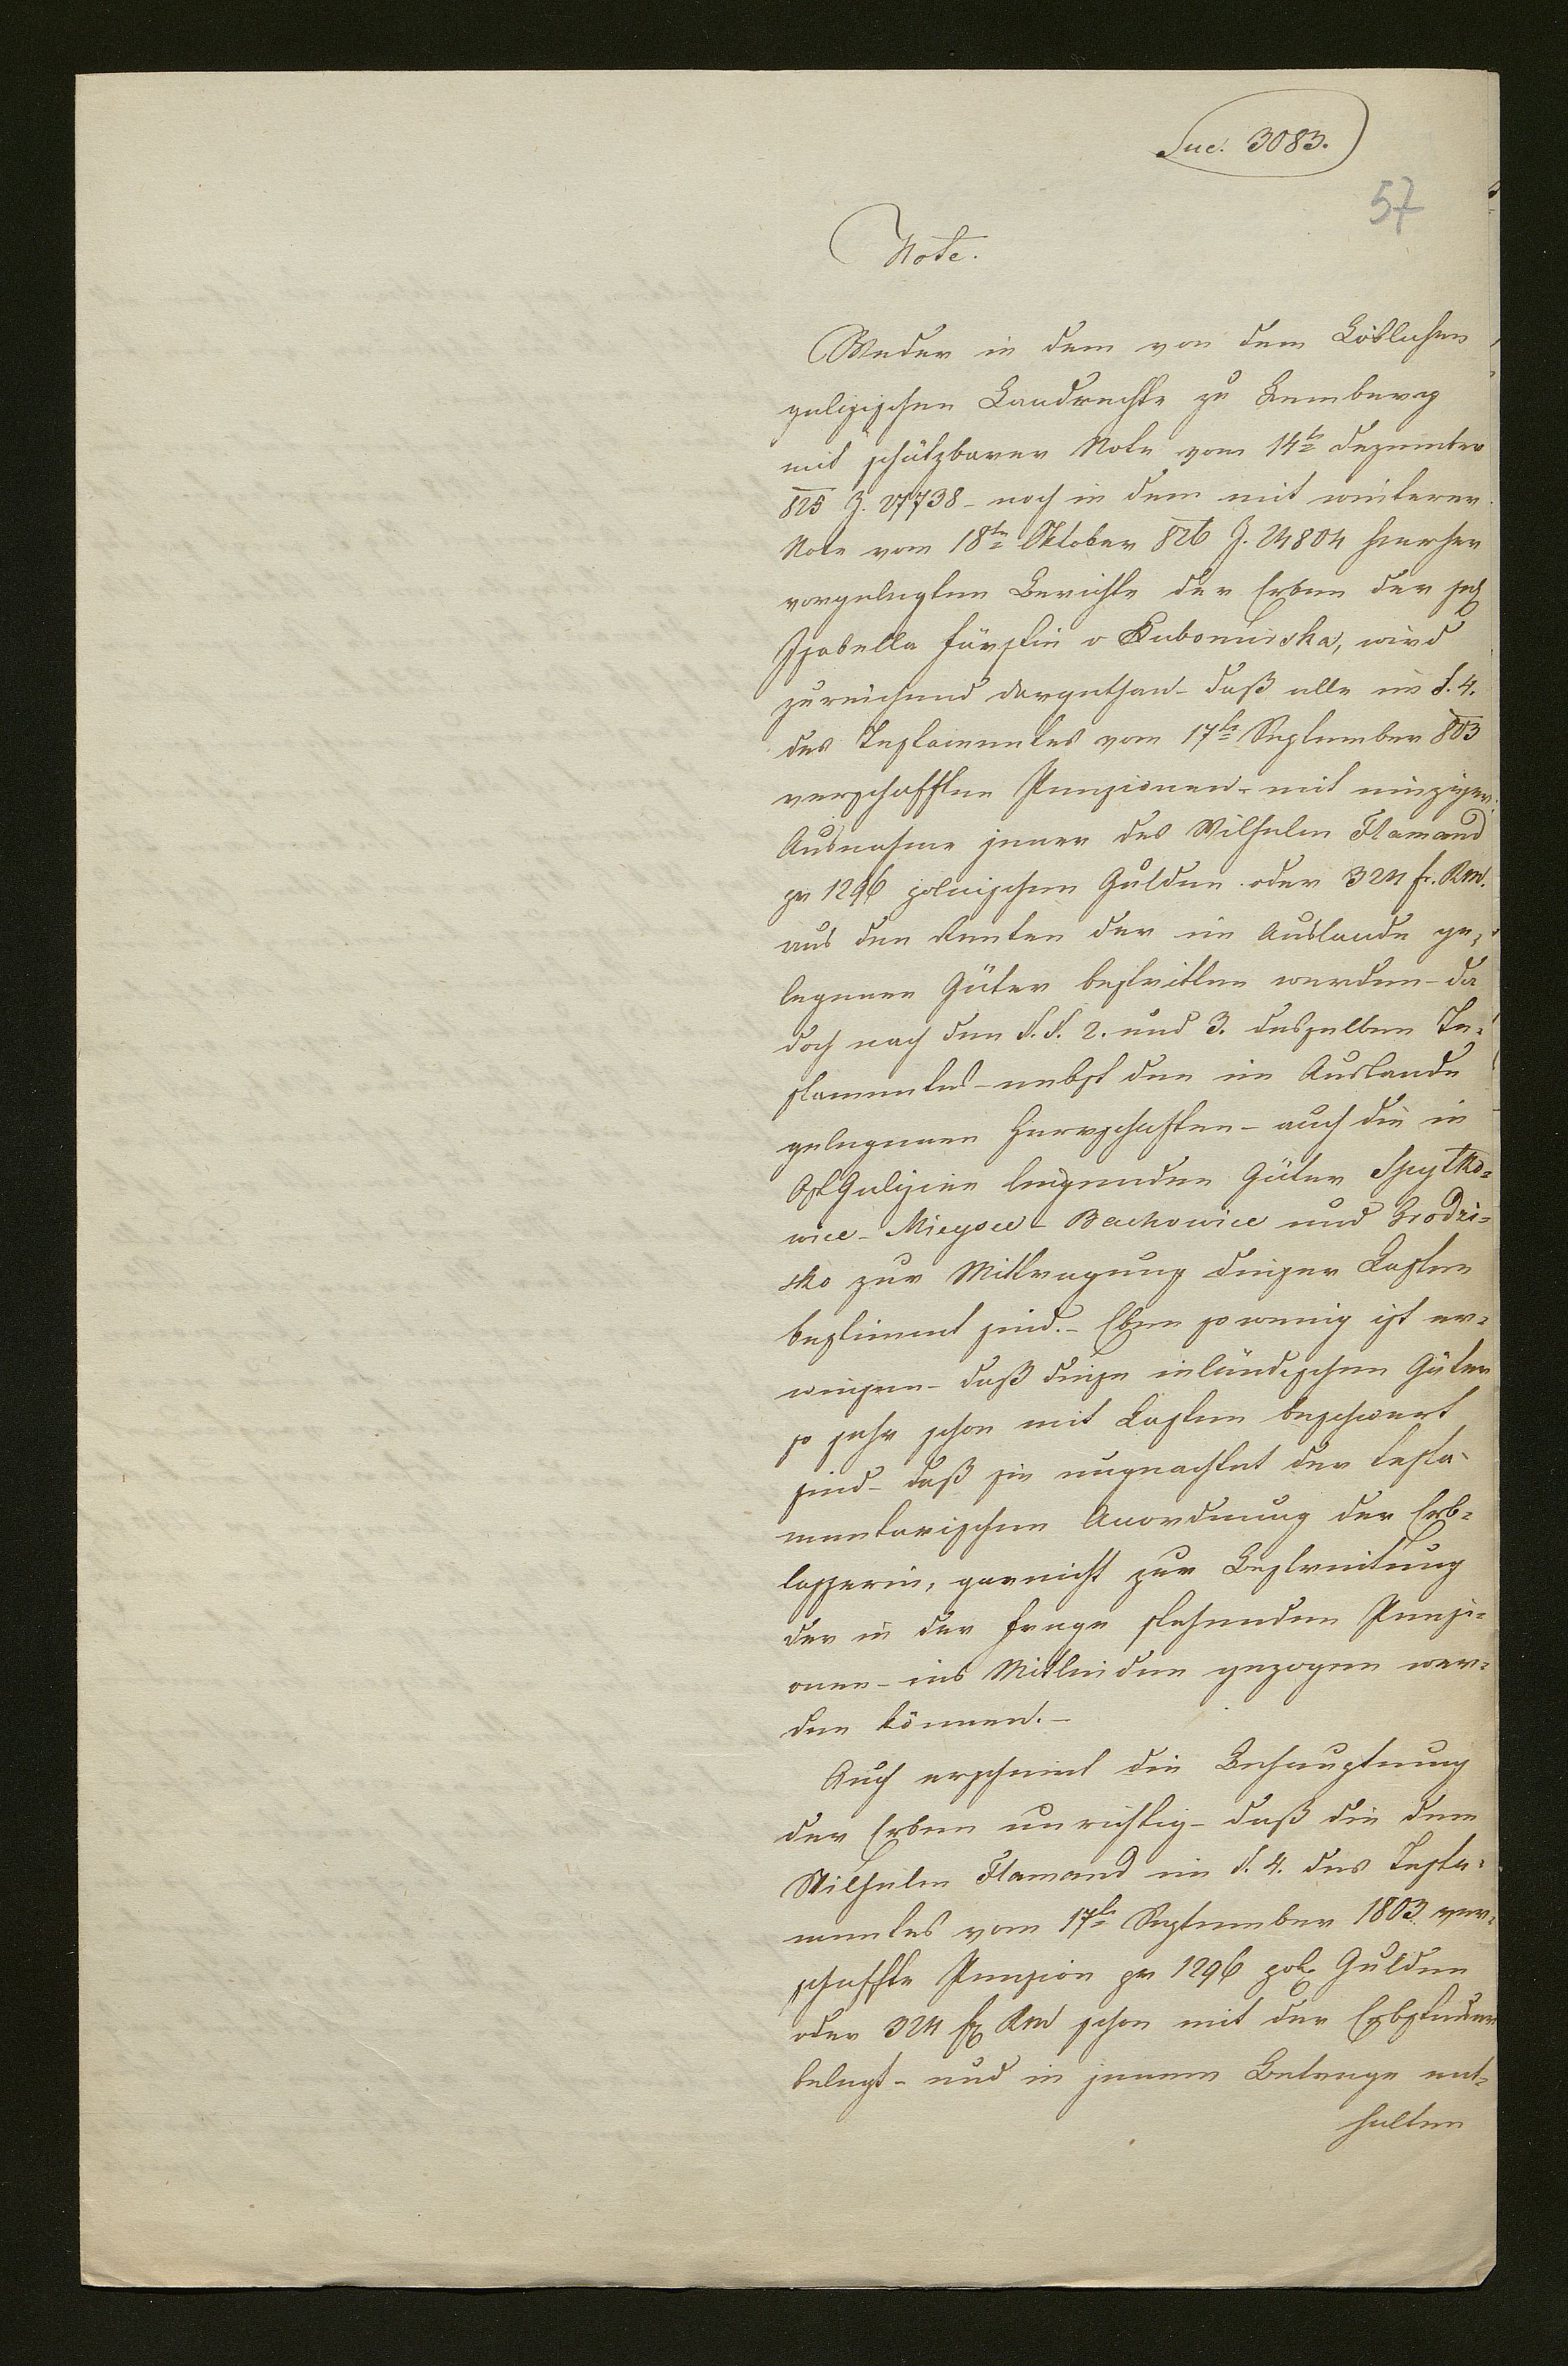 Suc. 3083.
57
Note.
Weder in dem von dem Löblichen
galizischen Landrechte zu Lemberg
mit schätzbarer Note vom 14ts Dezember
825 Z. 27738 - noch in dem mit weiterer
Note vom 18ten Oktober 826 Z. 24804 hierher
vorgelegten Berichte der Erben der sel
Isabella Fürstin v Lubomirska, wird
zureichend dargethan - daß alle im §. 4.
des Testamentes vom 17ts September 803
verschafften Penzionen - mit einziger
Ausnahme jener des Wilhelm Flamand
pr 1296 polnischen Gulden oder 324 fr. Km.
aus den Renten der im Auslande ge-
legenen Güter bestritten werden - da
doch nach den §. §. 2. und 3. desselben Te-
stamentes - nebst den im Auslande
gelegenen Herrschaften - auch die in
OstGalizien liegenden Güter Spytko-
wice - Mieysce - Bachowice und Grodzi-
sko zur Mittragung dieser Lasten
bestimmt sind. - Eben so wenig ist er-
wiesen - daß diese inländischen Güter
so sehr schon mit Lasten beschwert
sind - daß sie ungeachtet der testa-
mentarischen Anordnung der Erb-
lasserin, gar nicht zur Bestreitung
der in der Frage stehenden Penzi-
onen - ins Mitleiden gezogen wer-
den können. -
Auch erscheint die Behauptung
der Erben unrichtig - daß die dem
Wilhelm Flamand im §. 4. des Testa-
mentes vom 17ts September 1803 ver-
schaffte Penzion pr 1296 pol Gulden
oder 324 fr Km schon mit der Erbsteuer
belegt - und in jenem Betrage ent-
halten